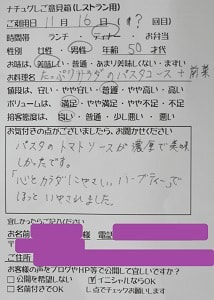 ナチュグしご意見箱(レストラン用)
ご利用日 11月 16日 ( 回目)
時間帯 ランチ ディナー お弁当
性別 女性・男性 年齢 50才
お味は、美味しい・普通・あまり美味しくない・まずい
お料理名 たっぷりサラダのパスタコース+前菜
値段は、安い・やや安い・普通・やや高い・高い
ボリュームは、満足・やや満足・やや不満・不満
接客態度は、良い・普通・少し悪い・悪い
お気付きの点がございましたら、お聞かせください
パスタのトマトソースが濃厚で美味
しかったです。
「心とカラダにやさしいハーブティー」で
ほっといやされました。
宜しかったらご記入ください
お名前 様 電話
〒
ご住所
お客様の声をブログやHP等で公開して宜しいですか?
□公開を希望しない ☑イニシャルならOK
□名前付きでOK し点でチェックお願いします